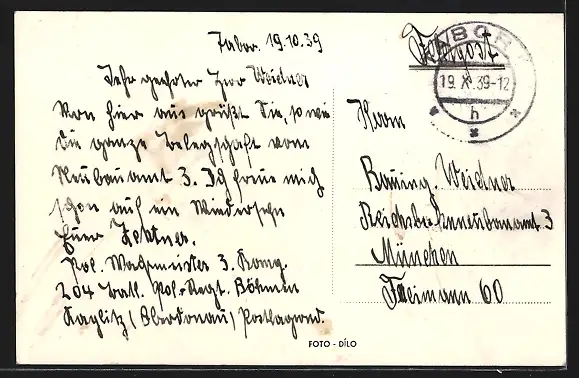 Tabor. 19.10.39
Sehr geehrter Herr Weidner
Von hier aus grüßt Sie, so wie
die ganze Belegschaft vom
Neubauamt 3. Ich freue mich
schon auf ein Wiedersehn
Euer
Pol. Wachmeister 3. Komp.
204 Batl. Pol.-Regt. Böhmen
Kaplitz (Oberdonau) Postlagernd.
Feldpost
TABOR
19.X.39-12
h
Herrn
Bauing. Weidner
Reichsbahnneubauamt 3
München
Freimann 60
FOTO - DÍLO